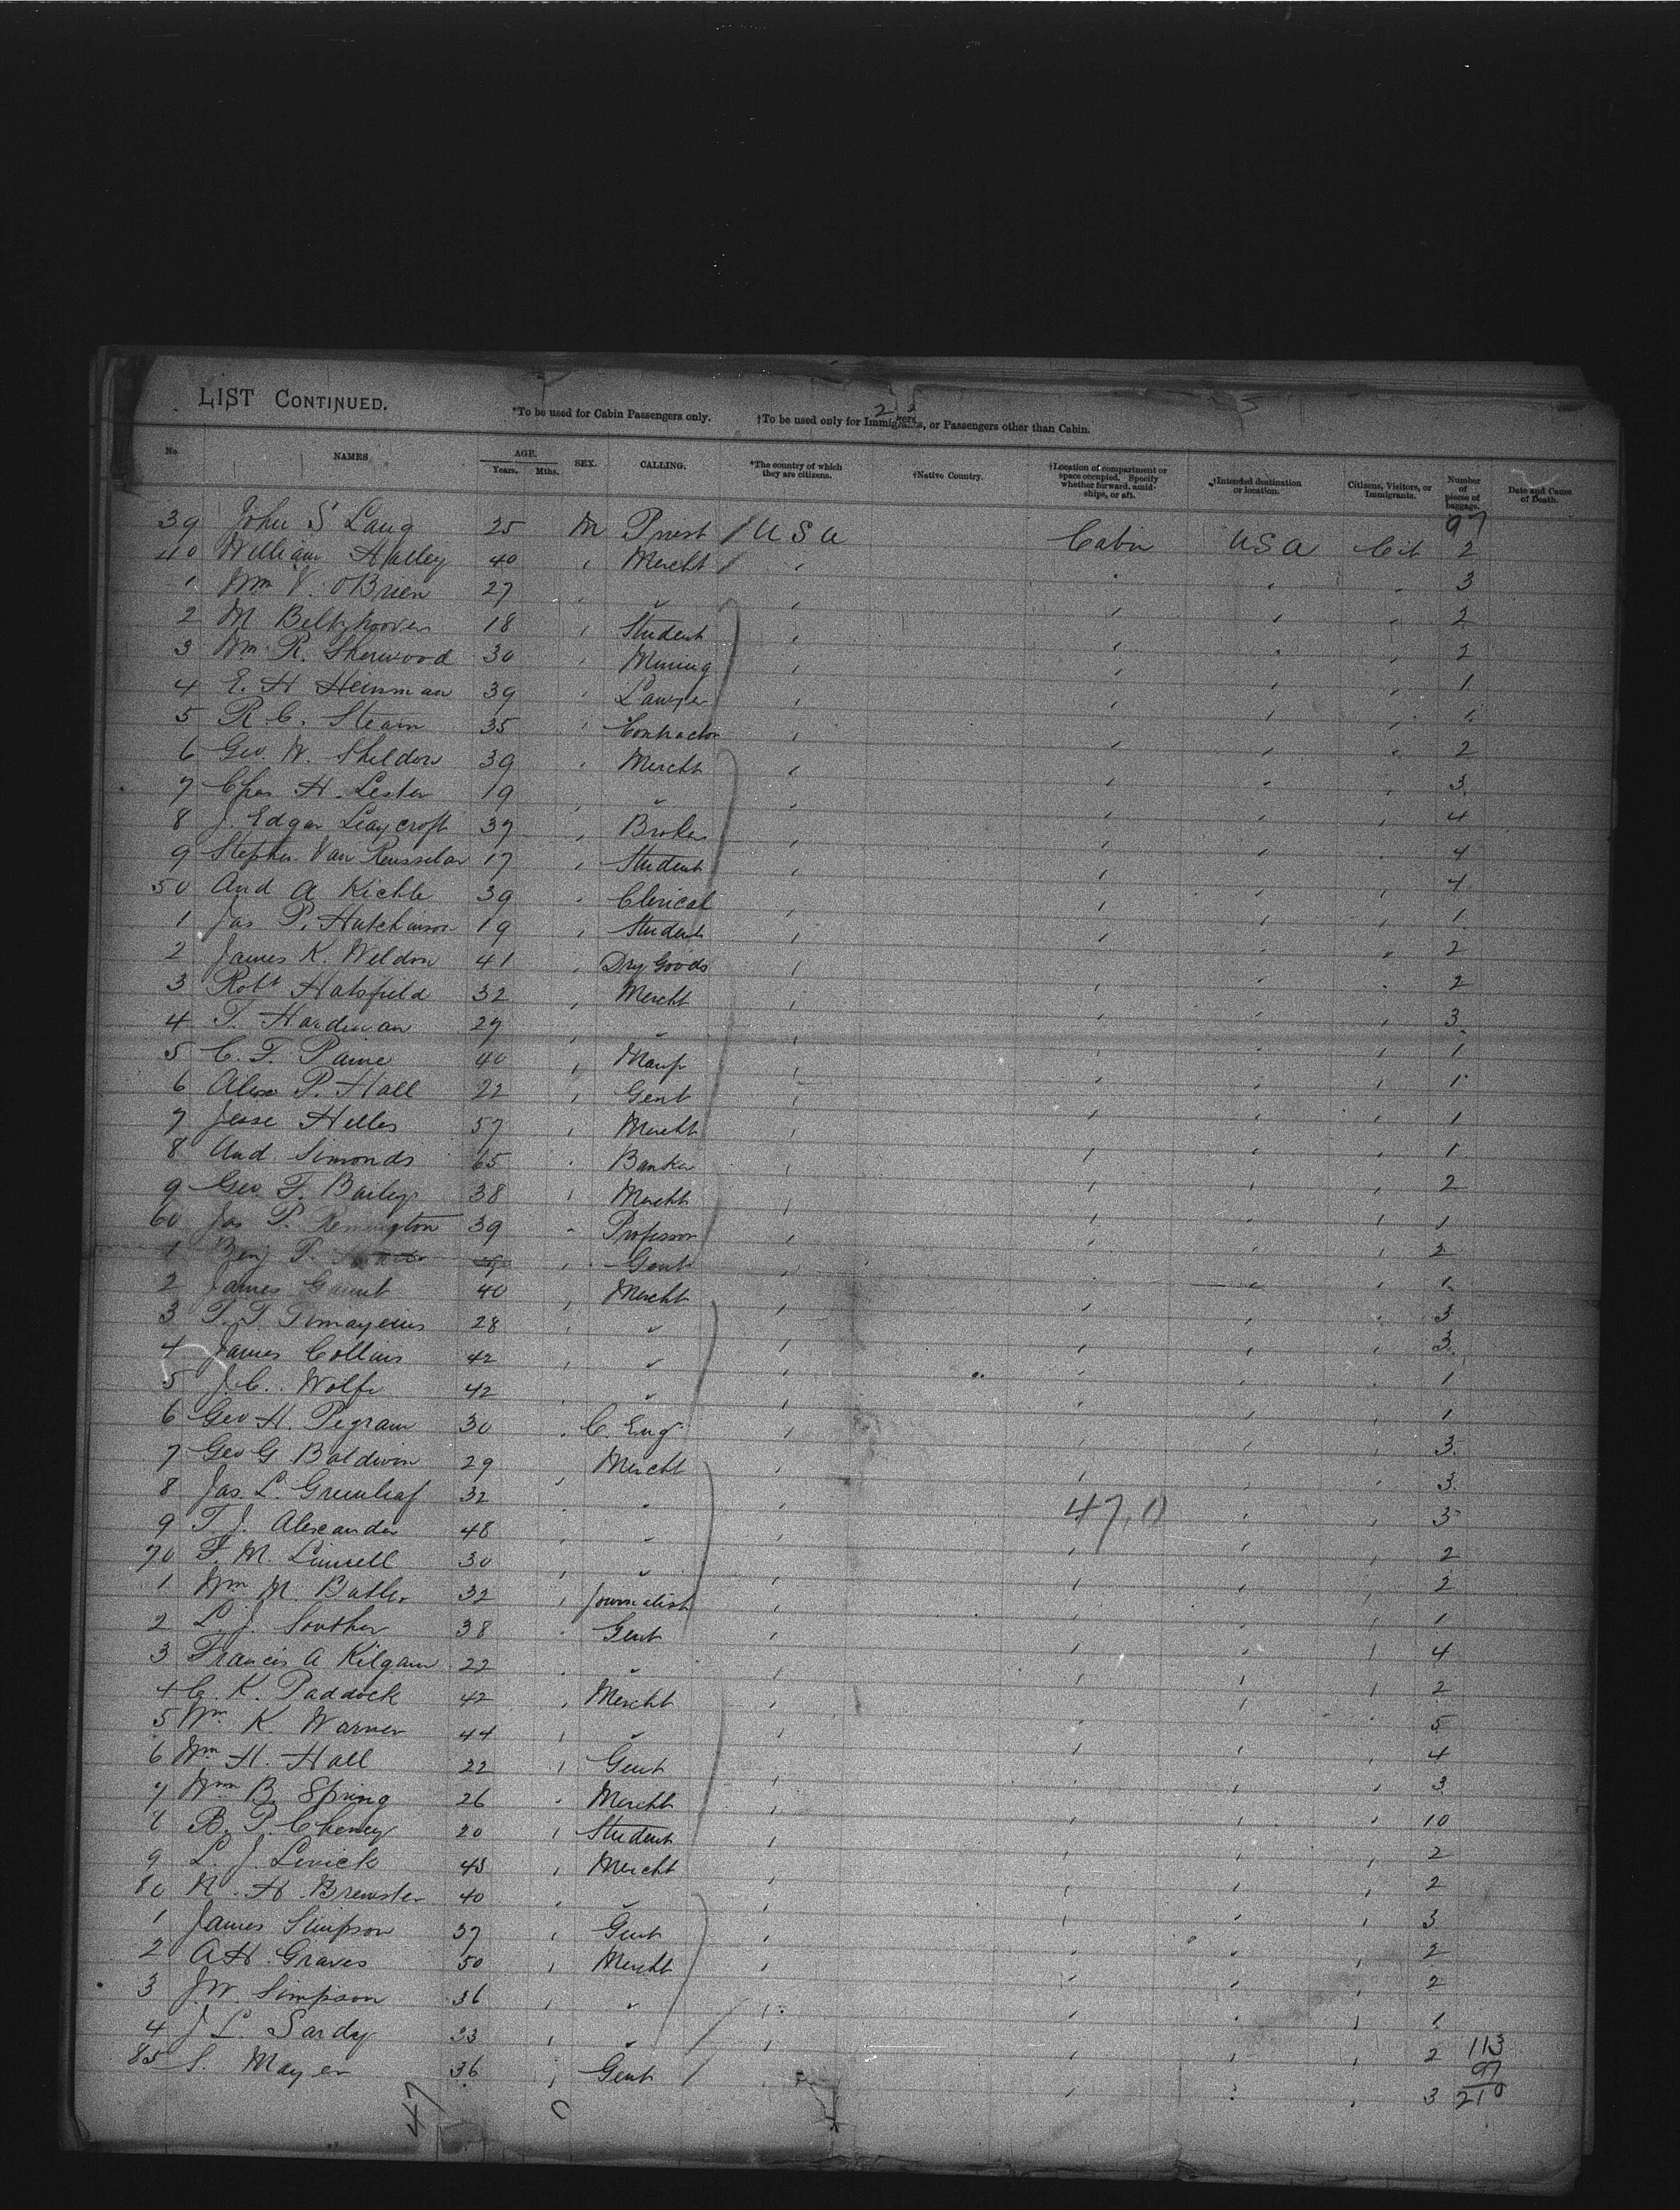 LIST CONTINUED.
*To be used for Cabin Passengers only. †To be used only for Immigrants, or Passengers other than Cabin.
No. NAMES AGE. Years. Mths. SEX. CALLING. *The country of which they are citizens. †Native Country. †Location of compartment or space occupied. Specify whether forward, amidships, or aft. †Intended destination or location. Citizens, Visitors, or Immigrants. Number of pieces of baggage. Date and Cause of Death.
97
39 John S Lang 25 M Priest / USA Cabin USA Cit 2
40 William Halley 40 , Mercht / , 3
1 Wm V. OBrien 27 , " , 2
2 M Beltzhoover 18 , Student , 2
3 Wm R. Sherwood 30 , Mining , 1
4 E. H Heinman 39 , Lawyer , 1
5 R. C. Stearn 35 , Contractor , 2
6 Geo. W. Sheldon 39 , Mercht , 3
7 Chas H. Lester 19 , " , 4
8 J. Edgar Leaycroft 37 , Broker , 4
9 Stephen Van Rensselar 17 , Student , 4
50 And A Kichle 39 , Clerical , 1
1 Jas P. Hutchinson 19 , Student , 2
2 James K. Weldon 41 , Dry Goods , 2
3 Robt Hatsfield 32 , Mercht , 3
4 T. Hardman 27 , " , 1
5 C. F. Paine 40 , Manfr , 1
6 Alex P. Hall 22 , Gent , 1
7 Jesse Helles 57 , Mercht , 1
8 And Simonds 65 , Banker , 2
9 Geo F. Bailey 38 , Mercht , 1
60 Jas P. Remington 39 " Professor , 2
1 Benj P. , Gent , 1
2 James Gaunt 40 , Mercht , 3
3 T. T. Timayenis 28 , " , 3
4 James Collins 42 , " , 1
5 J. C. Wolfe 42 , " , 1
6 Geo H. Pegram 30 , C. Eng , 3
7 Geo G Baldwin 29 , Mercht , 3
8 Jas. L. Greenleaf 32 , " , 47,0 3
9 T. J. Alexander 48 , " , 2
70 F. M. Linnell 30 , " , 2
1 Wm M. Butler 32 , Journalist , 1
2 L. J. Souther 38 , Gent , 4
3 Francis A Kilgam 22 , " , 2
4 C. K. Paddock 42 , Mercht , 5
5 Wm K. Warner 44 , " , 4
6 Wm H. Hall 22 , Gent , 3
7 Wm B. Spring 26 , Mercht , 10
8 B. P. Cheney 20 , Student , 2
9 L. J. Levick 43 , Mercht , 2
80 N. H. Brewster 40 , " , 3
1 James Simpson 37 , Gent , 2
2 A H. Graves 50 , Mercht , 2
3 J. W. Simpson 36 , " , 1
4 J L. Sardy 33 , " / , 2 113
85 S. Mayer 36 , Gent / , 3 97
210
47